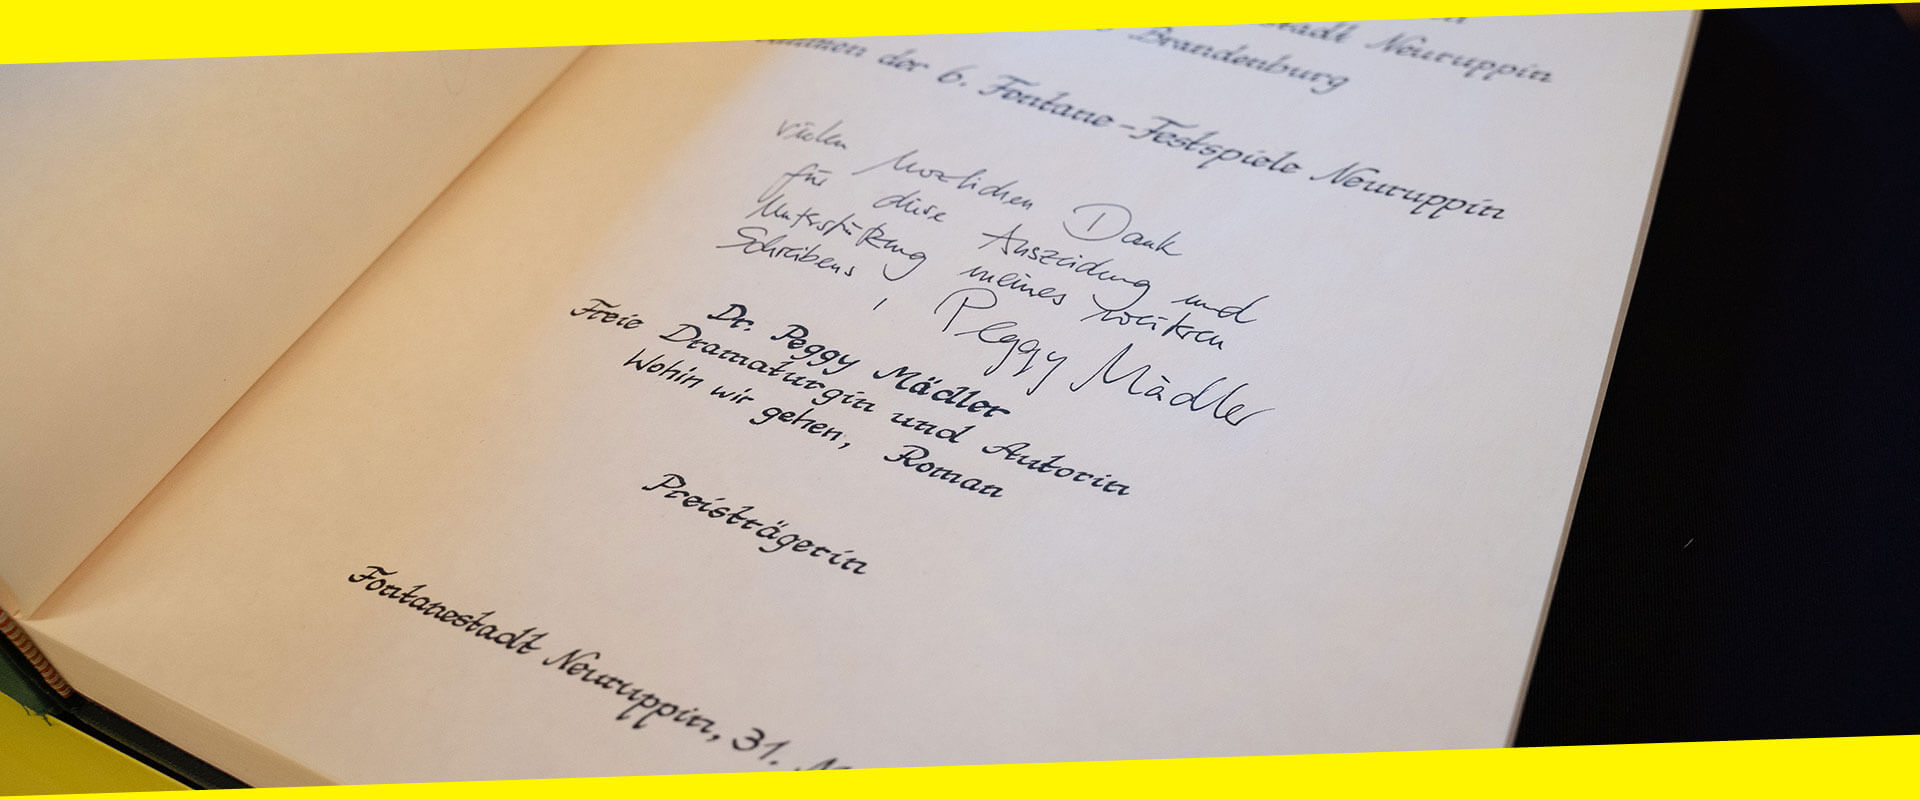 stadt Neuruppin
Brandenburg
der 6. Fontane-Festspiele Neuruppin
Vielen herzlichen Dank
für diese Auszeichnung und
Unterstützung meines weiteren
Schreibens, Peggy Mädler
Dr. Peggy Mädler
Freie Dramaturgin und Autorin
Wohin wir gehen, Roman
Preisträgerin
Fontanestadt Neuruppin, 31.